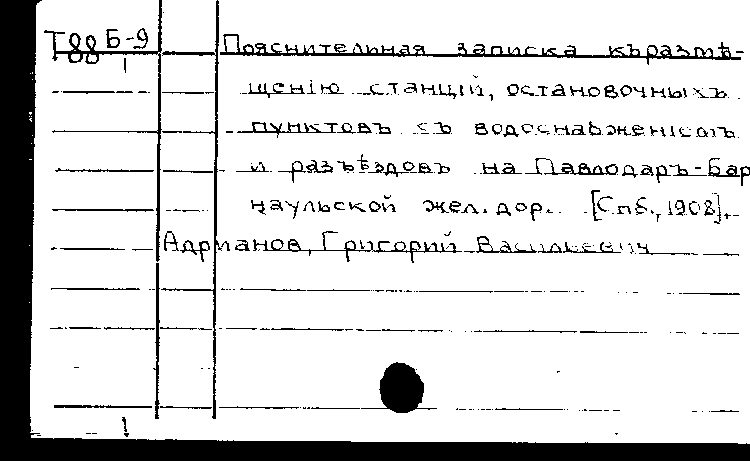 Т88 Б-9 Пояснительная записка къ размѣ-
1
щенію станцій, остановочныхъ
пунктовъ съ водоснабженіемъ
и разъѣздовъ на Павлодаръ-Бар
наульской жел. дор. [Спб., 1908].
Адрианов, Григорий Васильевич